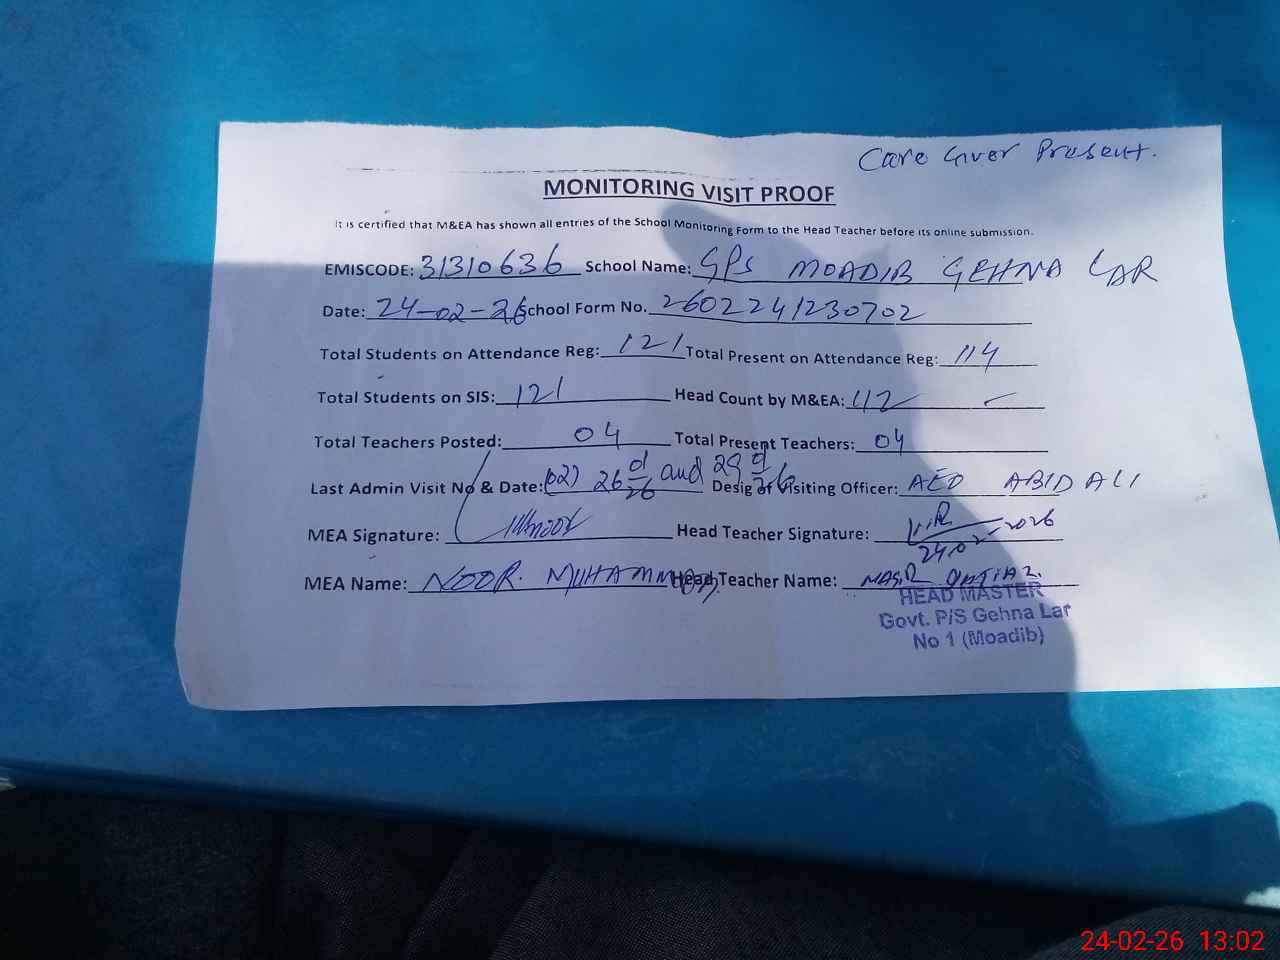 Care Giver Present.
MONITORING VISIT PROOF
It is certified that M&EA has shown all entries of the School Monitoring Form to the Head Teacher before its online submission.
EMISCODE: 31310636 School Name: GPS MOADIB GEHNA LAR
Date: 24-02-26 School Form No. 2602241230702
Total Students on Attendance Reg: 121 Total Present on Attendance Reg: 114
Total Students on SIS: 121 Head Count by M&EA: 112
Total Teachers Posted: 04 Total Present Teachers: 04
Last Admin Visit No & Date: (02) 26 01 26 and 29 01 26 Desig of Visiting Officer: AEO ABID ALI
MEA Signature: Head Teacher Signature:
24.02.2026
MEA Name: NOOR MUHAMMAD Head Teacher Name: NASIR
HEAD MASTER
Govt. P/S Gehna Lar
No 1 (Moadib)
24-02-26 13:02